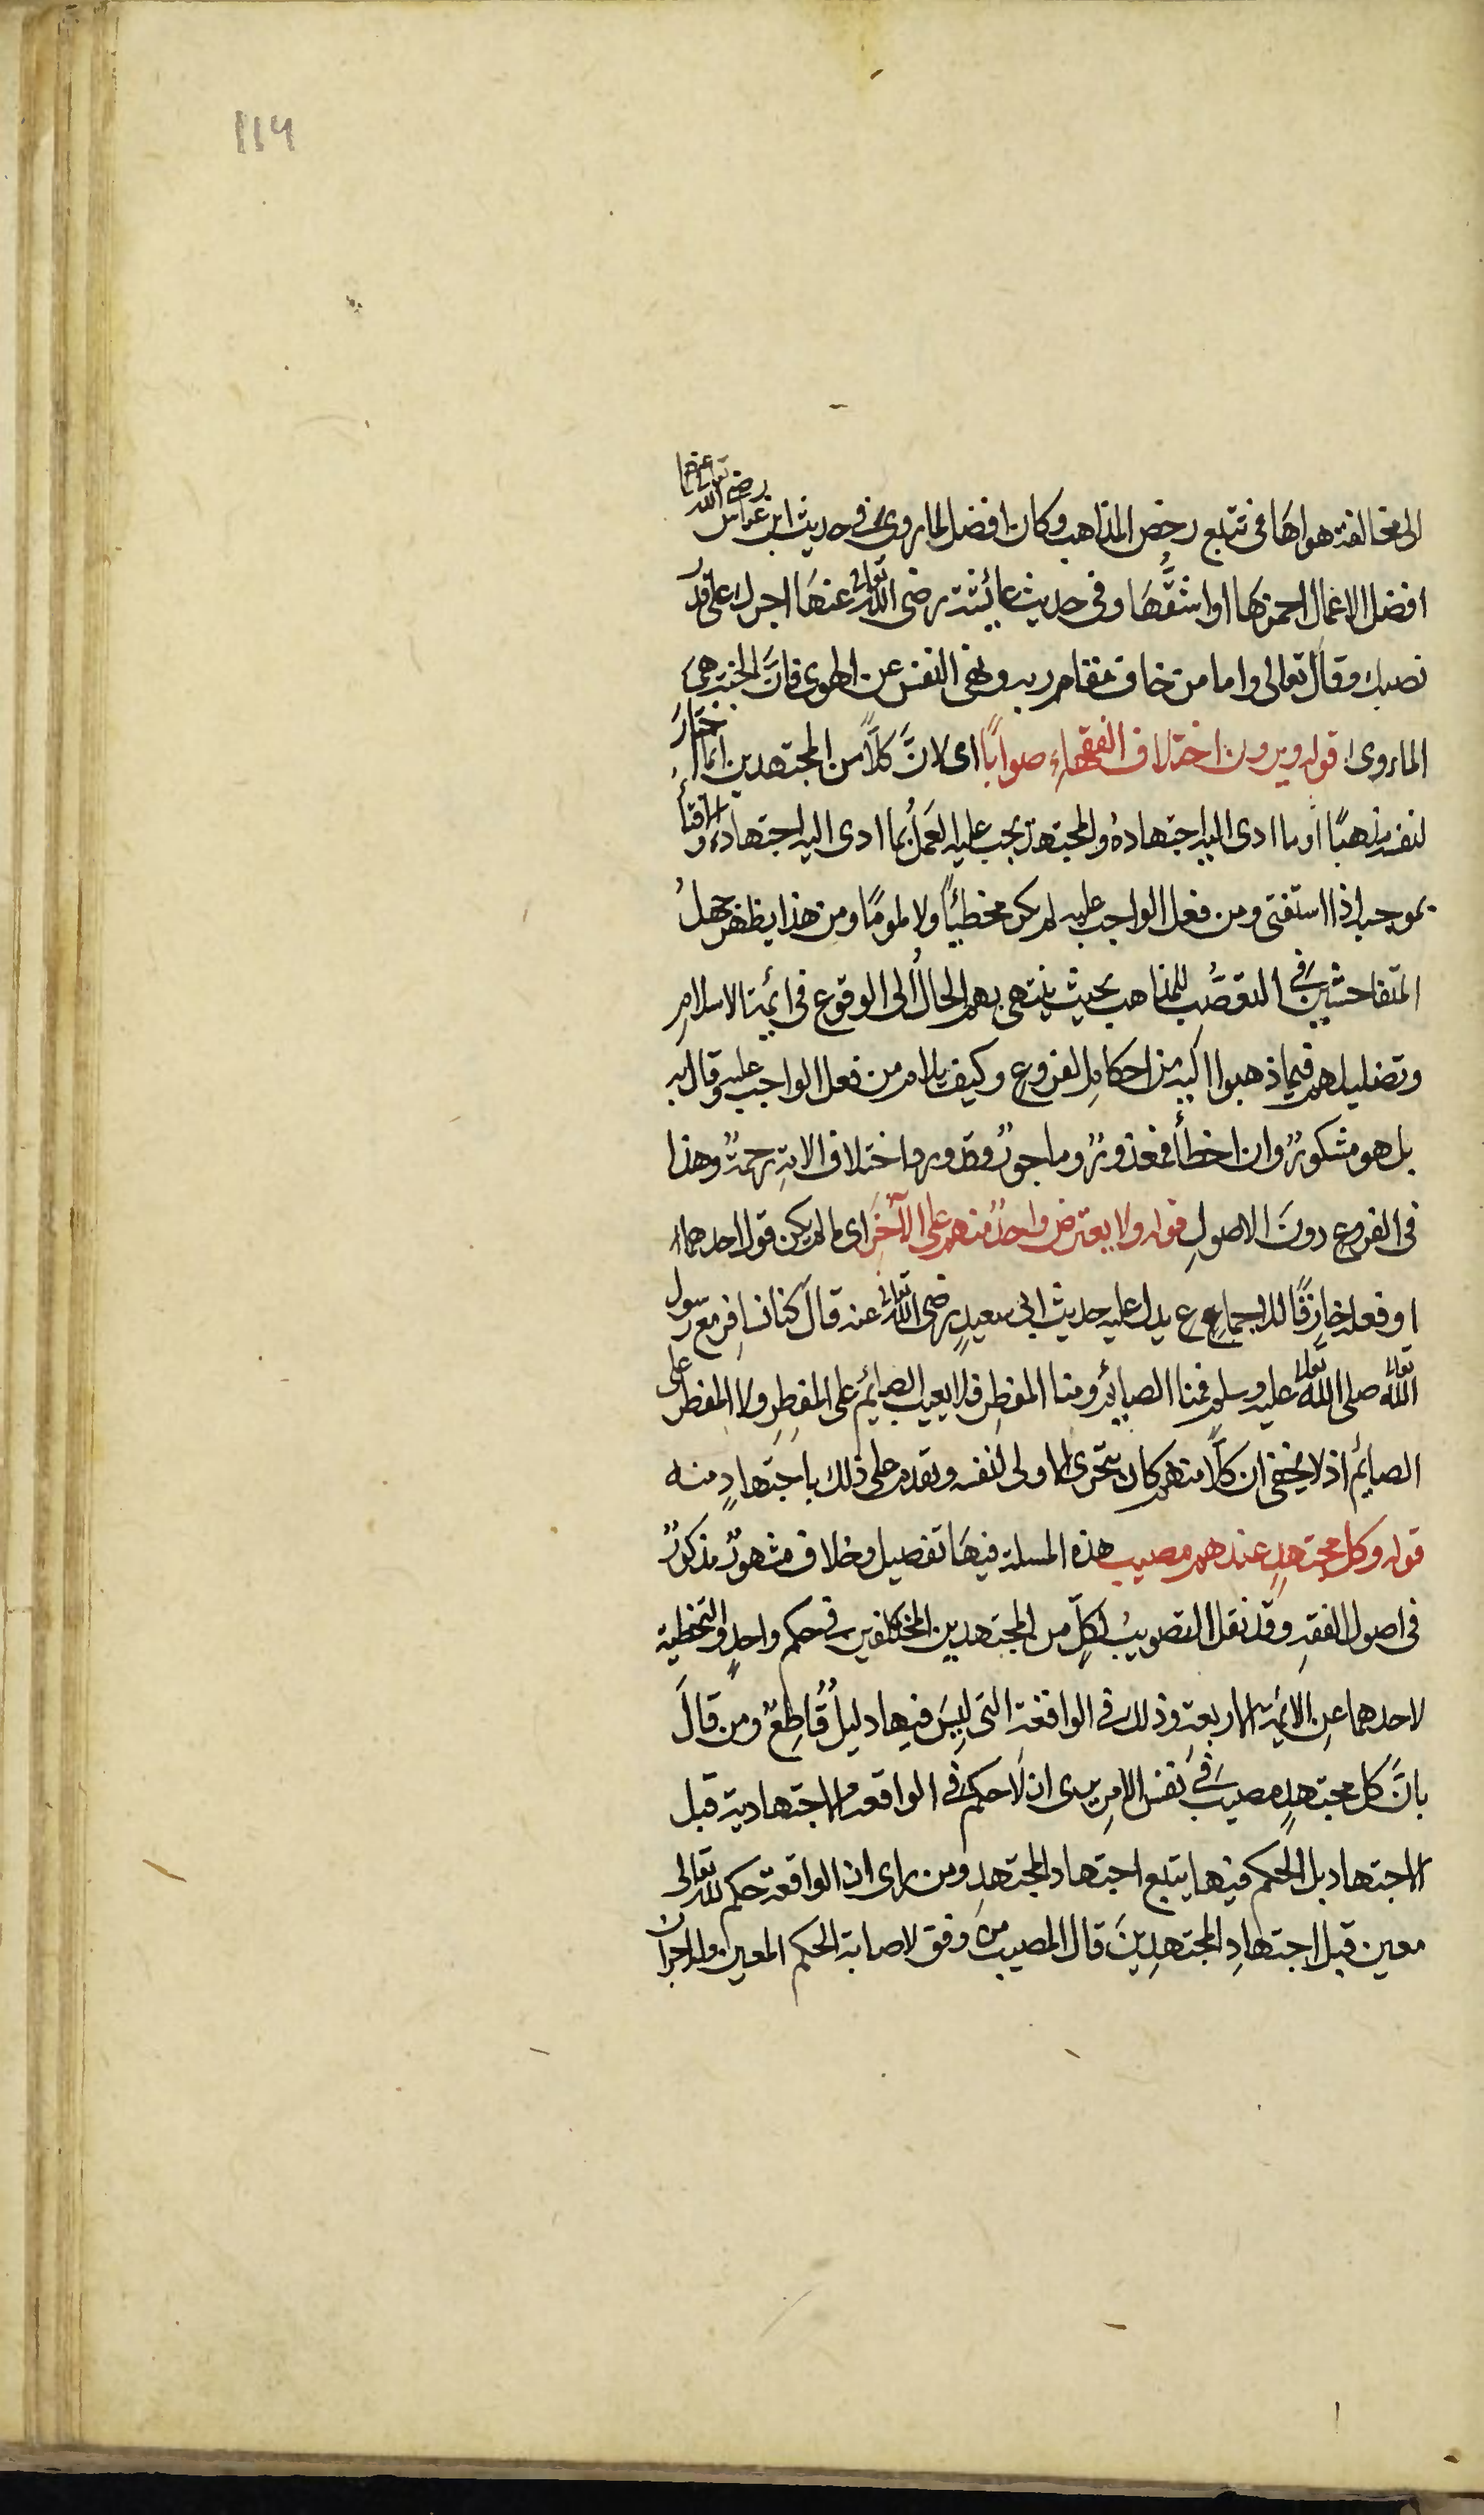 ١١٦
الى مخالفة هواها فى تتبع رخص المذاهب وكان افضل لما روى فى حديث ابن عباس رضى الله تعالى عنهما
افضل الاعمال احمزها اى اشقُّها وفى حديث عائشة رضى الله تعالى عنها اجرك على قدر
نصبك وقال تعالى واما من خاف مقام ربه ونهى النفس عن الهوى فانَّ الجنة هى
الماروى قوله ويرون اختلاف الفقهاءِ صوابًا اى لانَّ كلًّا من المجتهدين انما اختارَ
لنفسه مذهبًا او ما ادى اليه اجتهادهُ والمجتهد يجب عليه العَملُ بما ادى اليه اجتهاده والافتأُ
بموجبه اذا استفتى ومن فعل الواجب عليه لم يكن مخطيئًا ولا ملومًا ومن هذا يظهر جهلُ
المتفاحشين فى التعصُّب للمذاهب بحيث ينتهى بهم الحالُ الى الوقوع فى ائمة الاسلامِ
وتضليلهم فيما ذهبوا اليه من احكامِ الفروعِ وكيف يلام من فعل الواجب عليه وقال به
بل هو مشكورٌ وان اخطأ فمعذورٌ وماجورٌ وقد ورد اختلاف الامةِ رحمةٌ وهذا
فى الفروع دونَ الاصولِ قوله ولا يعترض واحدٌ منهم على الآخَرَ اى ما لم يكن قول احدهما
او فعله خارقًا للاجماع ع يدل عليه حديث ابى سعيدٍ رضى الله تعالى عنه قال كنا نسافِر مع رسول
الله تعالى صلى الله تعالى عليه وسلم فمنا الصايم ومنا المفطِر فلا يعيب الصايم على المفطِرِ ولا المفطر على
الصايم اذ لا يخفى ان كلًّا منهم كان يتحرى الاولى لنفسه ويقدم على ذلك باجتهادٍ منه
قوله وكل مجتهدٍ عندهم مصيب هذه المسلة فيها تفصيل وخلاف مشهورٌ مذكورٌ
فى اصول الفقهِ وقد نقل التصويبُ لكلٍّ من المجتهدين المختلفين فى حكم واحدٍ والتخطية
لاحدهما عن الائمة الاربعة وذلك فى الواقعة التى ليسَ فيها دليلٌ قاطعٌ ومن قالَ
بانَّ كل مجتهدٍ مصيب فى نفس الامرِ يرى ان لا حكم فى الواقعة الاجتهادية قبل
الاجتهاد بل الحكم فيها يتبع اجتهاد المجتهدِ ومن راى ان الواقعة حكم لله تعالى
معين قبل اجتهادِ المجتهدِينَ قال المصيب من وفق لاصابة الحكم المعين وله اجران